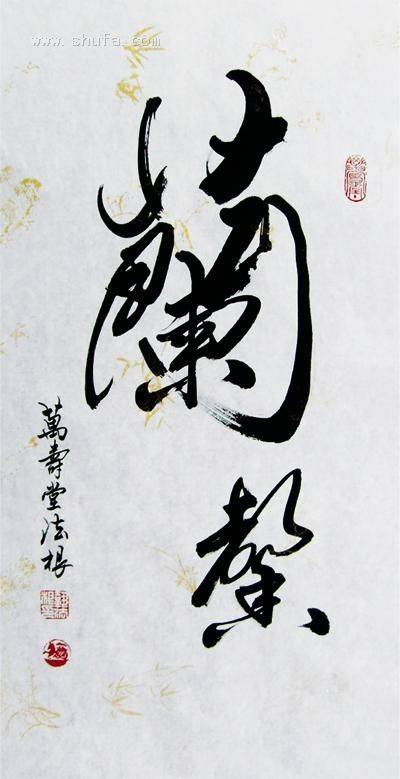 www.shufa.com
蘭馨
萬壽堂法根